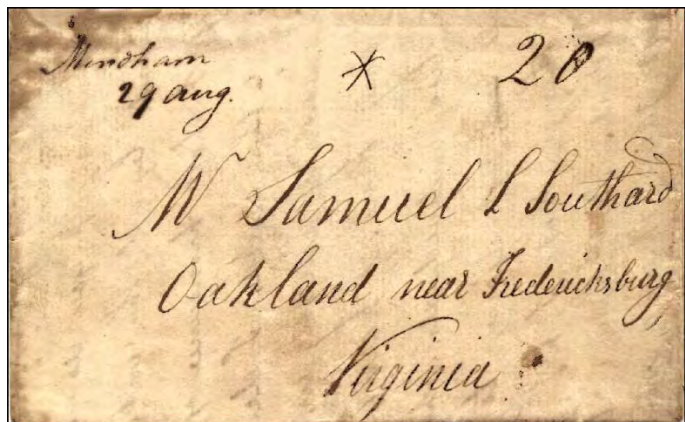 Mendham * 20
29 aug.
Mr Samuel L Southard
Oakland near Fredericksburg
Virginia